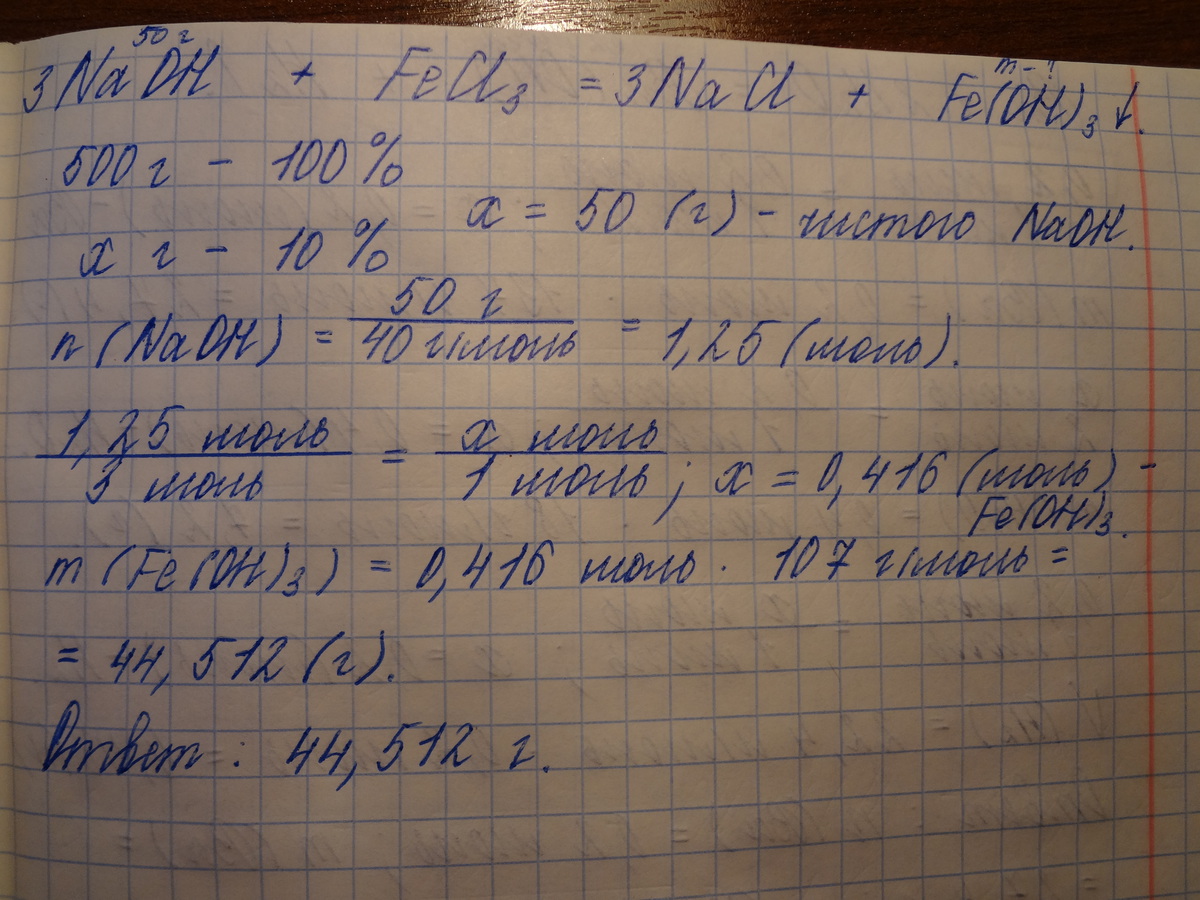 50 г
m - ?
3NaOH + FeCl₃ = 3NaCl + Fe(OH)₃↓.
500 г - 100 %
x г - 10 %
x = 50 (г) - чистого NaOH.
n (NaOH) = 50 г / 40 г/моль = 1,25 (моль).
1,25 моль / 3 моль = x моль / 1 моль ; x = 0,416 (моль) -
Fe(OH)₃.
m (Fe(OH)₃) = 0,416 моль · 107 г/моль =
= 44,512 (г).
Ответ : 44,512 г.